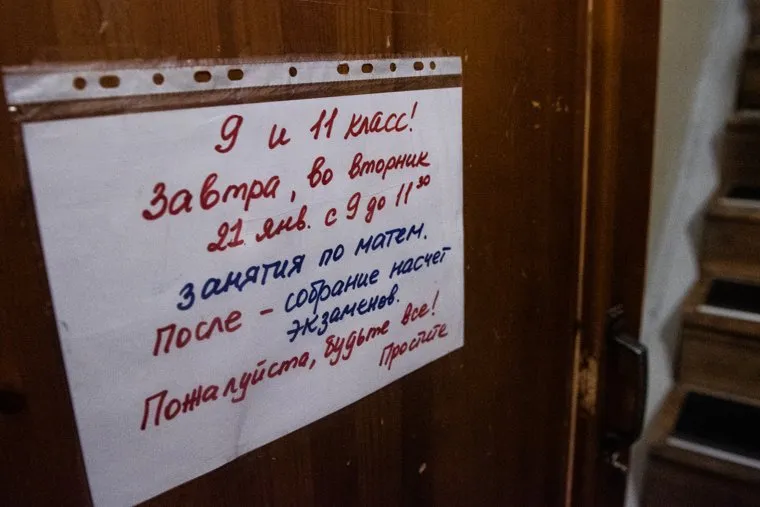 9 и 11 класс!
Завтра, во вторник
21 янв. с 9 до 11³⁰
занятия по матем.
После – собрание насчет
экзаменов.
Пожалуйста, будьте все!
Простите